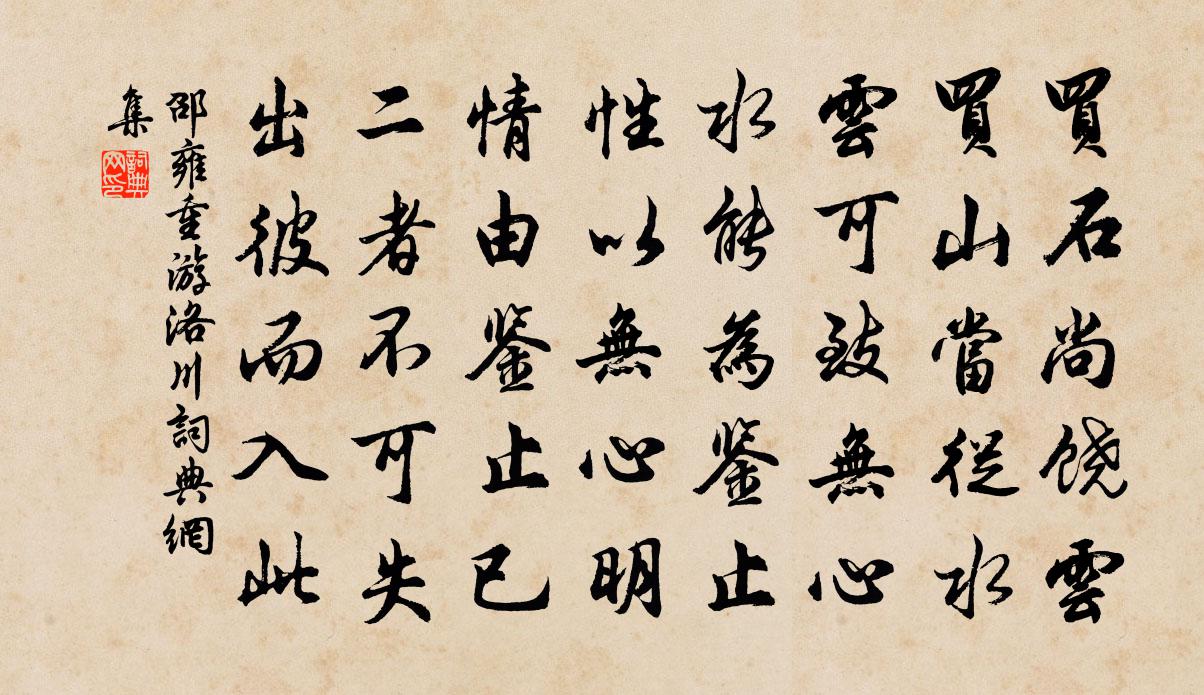 買石尚饶雲
買山當從水
雲可致無心
水能為鉴止
性以無心明
情由鉴止已
二者不可失
出彼而入此
邵雍重游洛川詞典網
集
詞典
网印